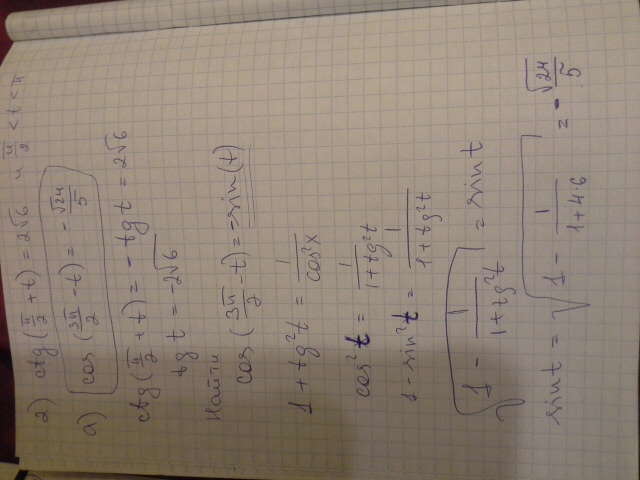 2) ctg(π/2 + t) = 2√6 и π/2 < t < π
а) cos(3π/2 - t) = - √24/5
ctg(π/2 + t) = - tg t = 2√6
tg t = -2√6
Найти
cos(3π/2 - t) = -sin(t)
1 + tg²t = 1/cos²x
cos²t = 1/(1+tg²t)
1 - sin²t = 1/(1+tg²t)
√(1 - 1/(1+tg²t)) = sin t
sin t = √(1 - 1/(1+4·6)) = - √24/5